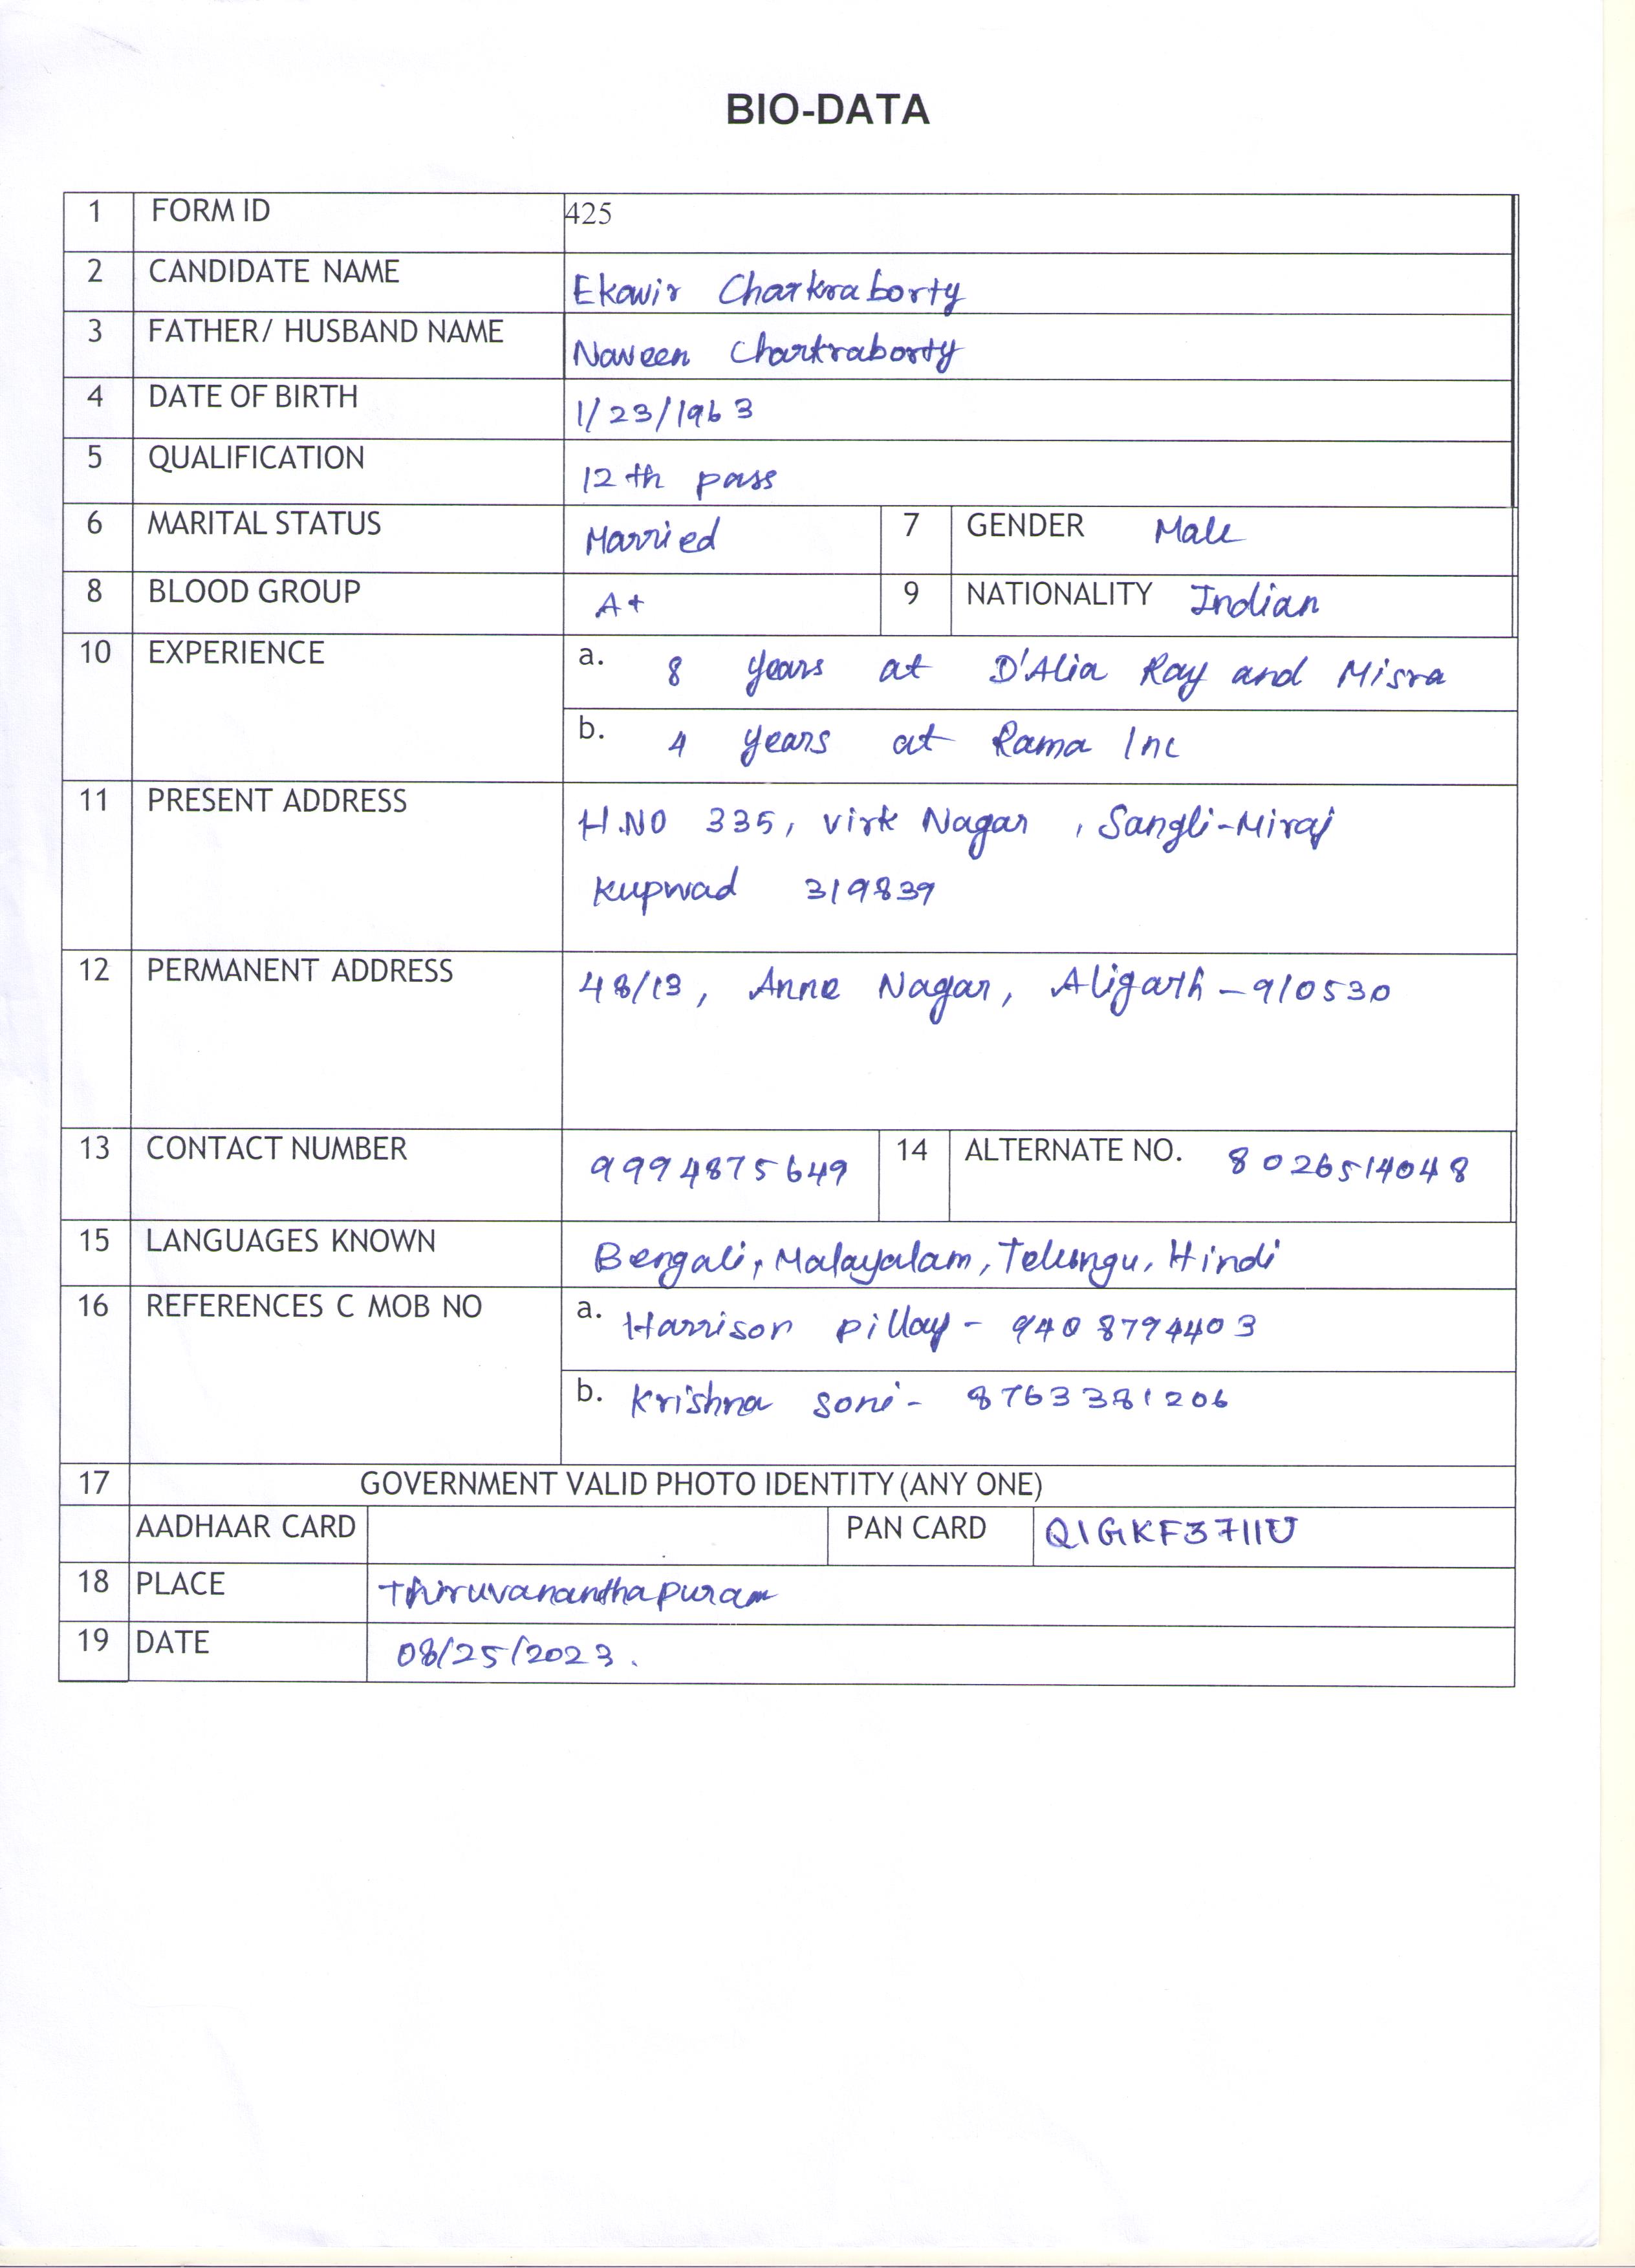 BIO-DATA
1 FORM ID 425
2 CANDIDATE NAME Ekavir Charkraborty
3 FATHER/ HUSBAND NAME Naveen Charkraborty
4 DATE OF BIRTH 1/23/1963
5 QUALIFICATION 12th pass
6 MARITAL STATUS Married 7 GENDER Male
8 BLOOD GROUP A+ 9 NATIONALITY Indian
10 EXPERIENCE a. 8 years at D'Alia Ray and Misra
b. 4 years at Rama Inc
11 PRESENT ADDRESS H.NO 335, Virk Nagar , Sangli-Miraj
Kupwad 319839
12 PERMANENT ADDRESS 48/13, Anne Nagar, Aligarh - 910530
13 CONTACT NUMBER 9994875649 14 ALTERNATE NO. 8026514048
15 LANGUAGES KNOWN Bengali, Malayalam, Telungu, Hindi
16 REFERENCES C MOB NO a. Harrison pillay - 9408794403
b. Krishna soni - 8763381206
17 GOVERNMENT VALID PHOTO IDENTITY (ANY ONE)
AADHAAR CARD PAN CARD QIGKF3711U
18 PLACE Thiruvananthapuram
19 DATE 08/25/2023.